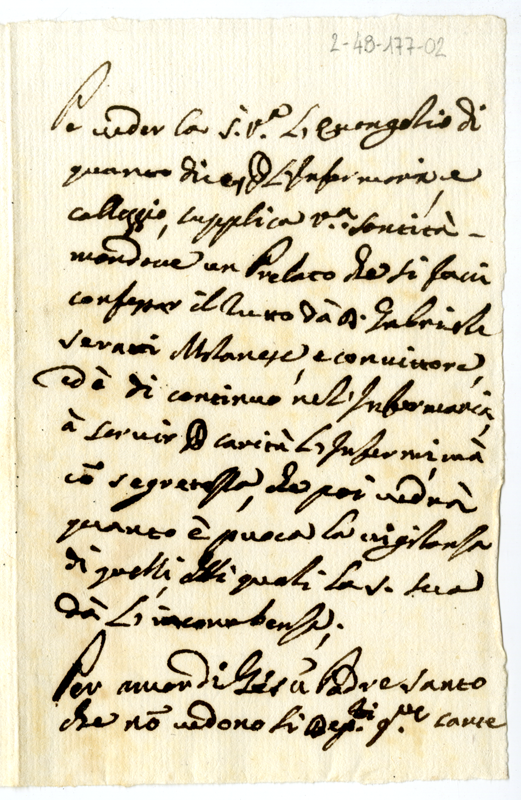 2-48-177-02
Pe veder la S. V.ra L'Evangelio di
quanto dice, L'Infermaria, e
colleggio, supplica V.ra Santità
mandare un Prelato che si facci
confessar il tutto dà D. Gabriele
Milanese, e convittore,
ed è di continuo nell'Infermaria,
à servir carità L'Infermi, mà
cō segretezza, che poi vedrà
quanto è puoca la vigilanza
di quelli, alli quali la S. sua
dà L'incombenza;
Per amor di Giesù Padre santo
che nō vedono li q.te carte